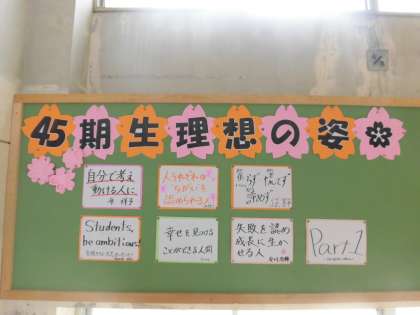 45期生理想の姿
自分で考え
動ける人に
人それぞれの
ちがいを
認められる人
らず
慌てず
諦めず
Students,
be ambitious!
幸せを見つける
ことができる人間
失敗を認め
成長に生か
せる人
Part 1